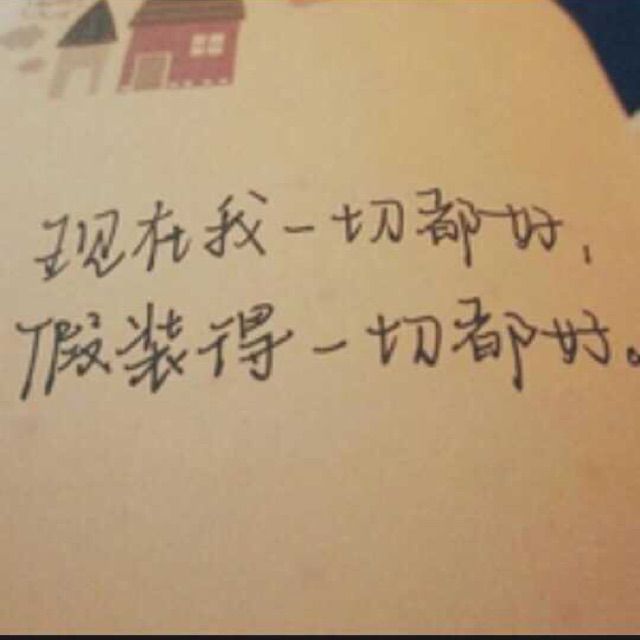 现在我一切都好，
假装得一切都好。